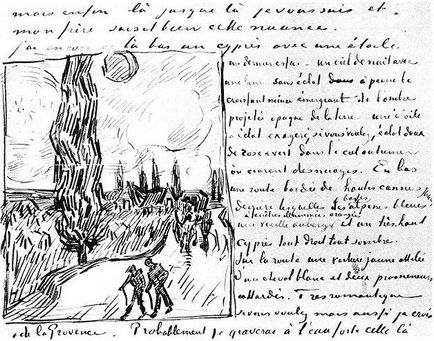 mais enfin là jusque là je voussais et
mon frère saisit bien cette nuance.
j'ai encore de là bas un cyprès avec une étoile
un dernier essai - un ciel de nuit avec
une lune sans éclat à peine le
croissant mince émergeant de l'ombre
projetée opaque de la terre - une étoile
à éclat exagéré, si vous voulez, éclat doux
de rose & vert dans le ciel outremer
où courent des nuages. En bas
une route bordée de hautes cannes jaunes
derrière lesquelles les basses alpines bleues
une vieille auberge à fenêtres illuminées orangées et un très haut
cyprès tout droit tout sombre.
Sur la route une voiture jaune attelée
d'un cheval blanc et deux promeneurs
attardés. Très romantique
si vous voulez mais aussi je crois
de la Provence. Probablement je graverai à l'eau forte celle là